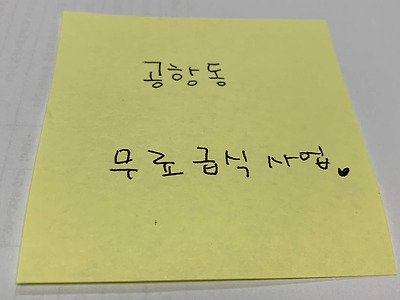 공항동
무료 급식 사업.